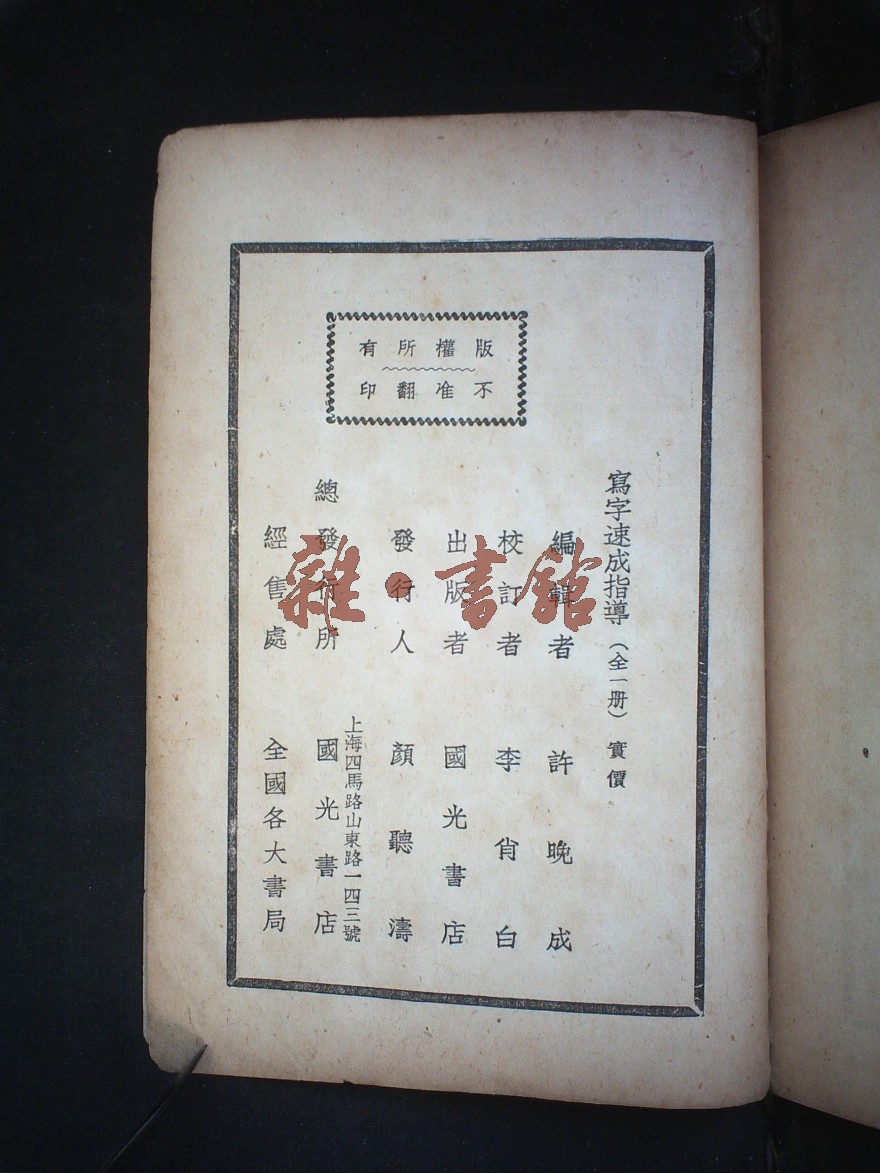 版權所有
不准翻印
寫字速成指導（全一册）實價
編輯者 許晚成
校訂者 李肖白
出版者 國光書店
發行人 顏聽濤
上海四馬路山東路一四三號
總發行所 國光書店
經售處 全國各大書局
雜·書館